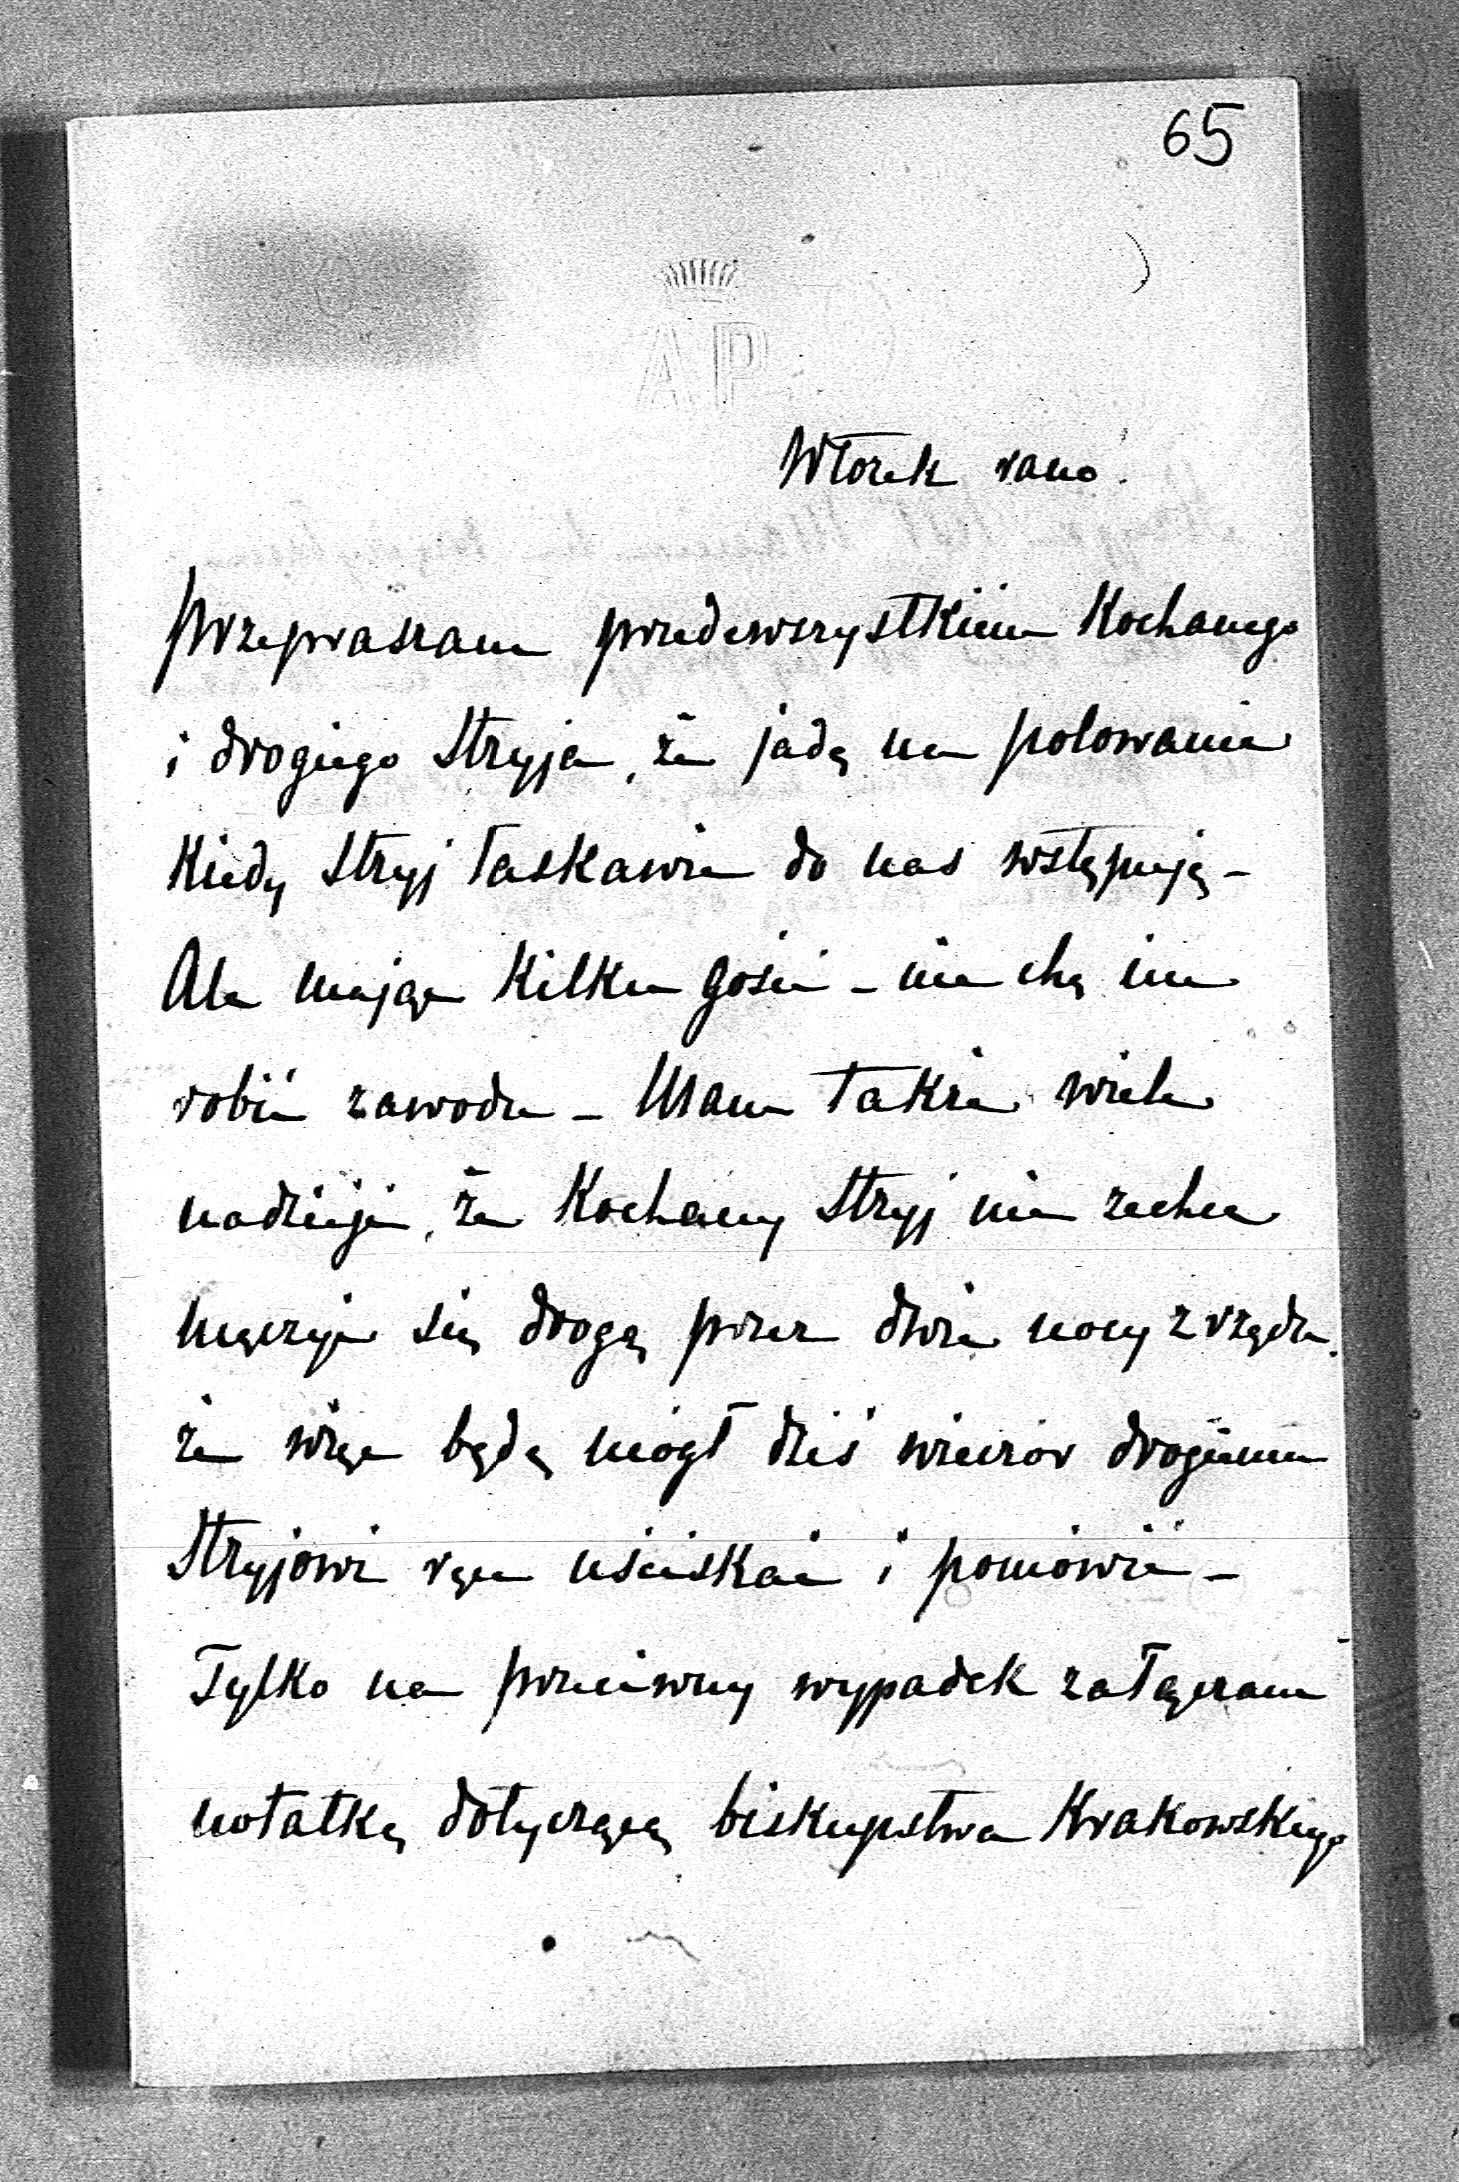 65
AP
Wtorek rano.
Przepraszam przedewszystkiem Kochanego
i drogiego Stryja, że jadę na polowanie
Kiedy Stryj łaskawie do nas wstępuje -
Ale mając Kilku gości - nie chcę im
robić zawodu - Mam także wiele
nadzieji, że Kochany Stryj nie zechce
męczyć się drogą przez dwie nocy z rzędu,
że więc będę mógł dziś wieczór drogiemu
Stryjowi ręce uściskać i pomówić -
Tylko na przeciwny wypadek załączam
notatkę dotyczącą biskupstwa Krakowskiego